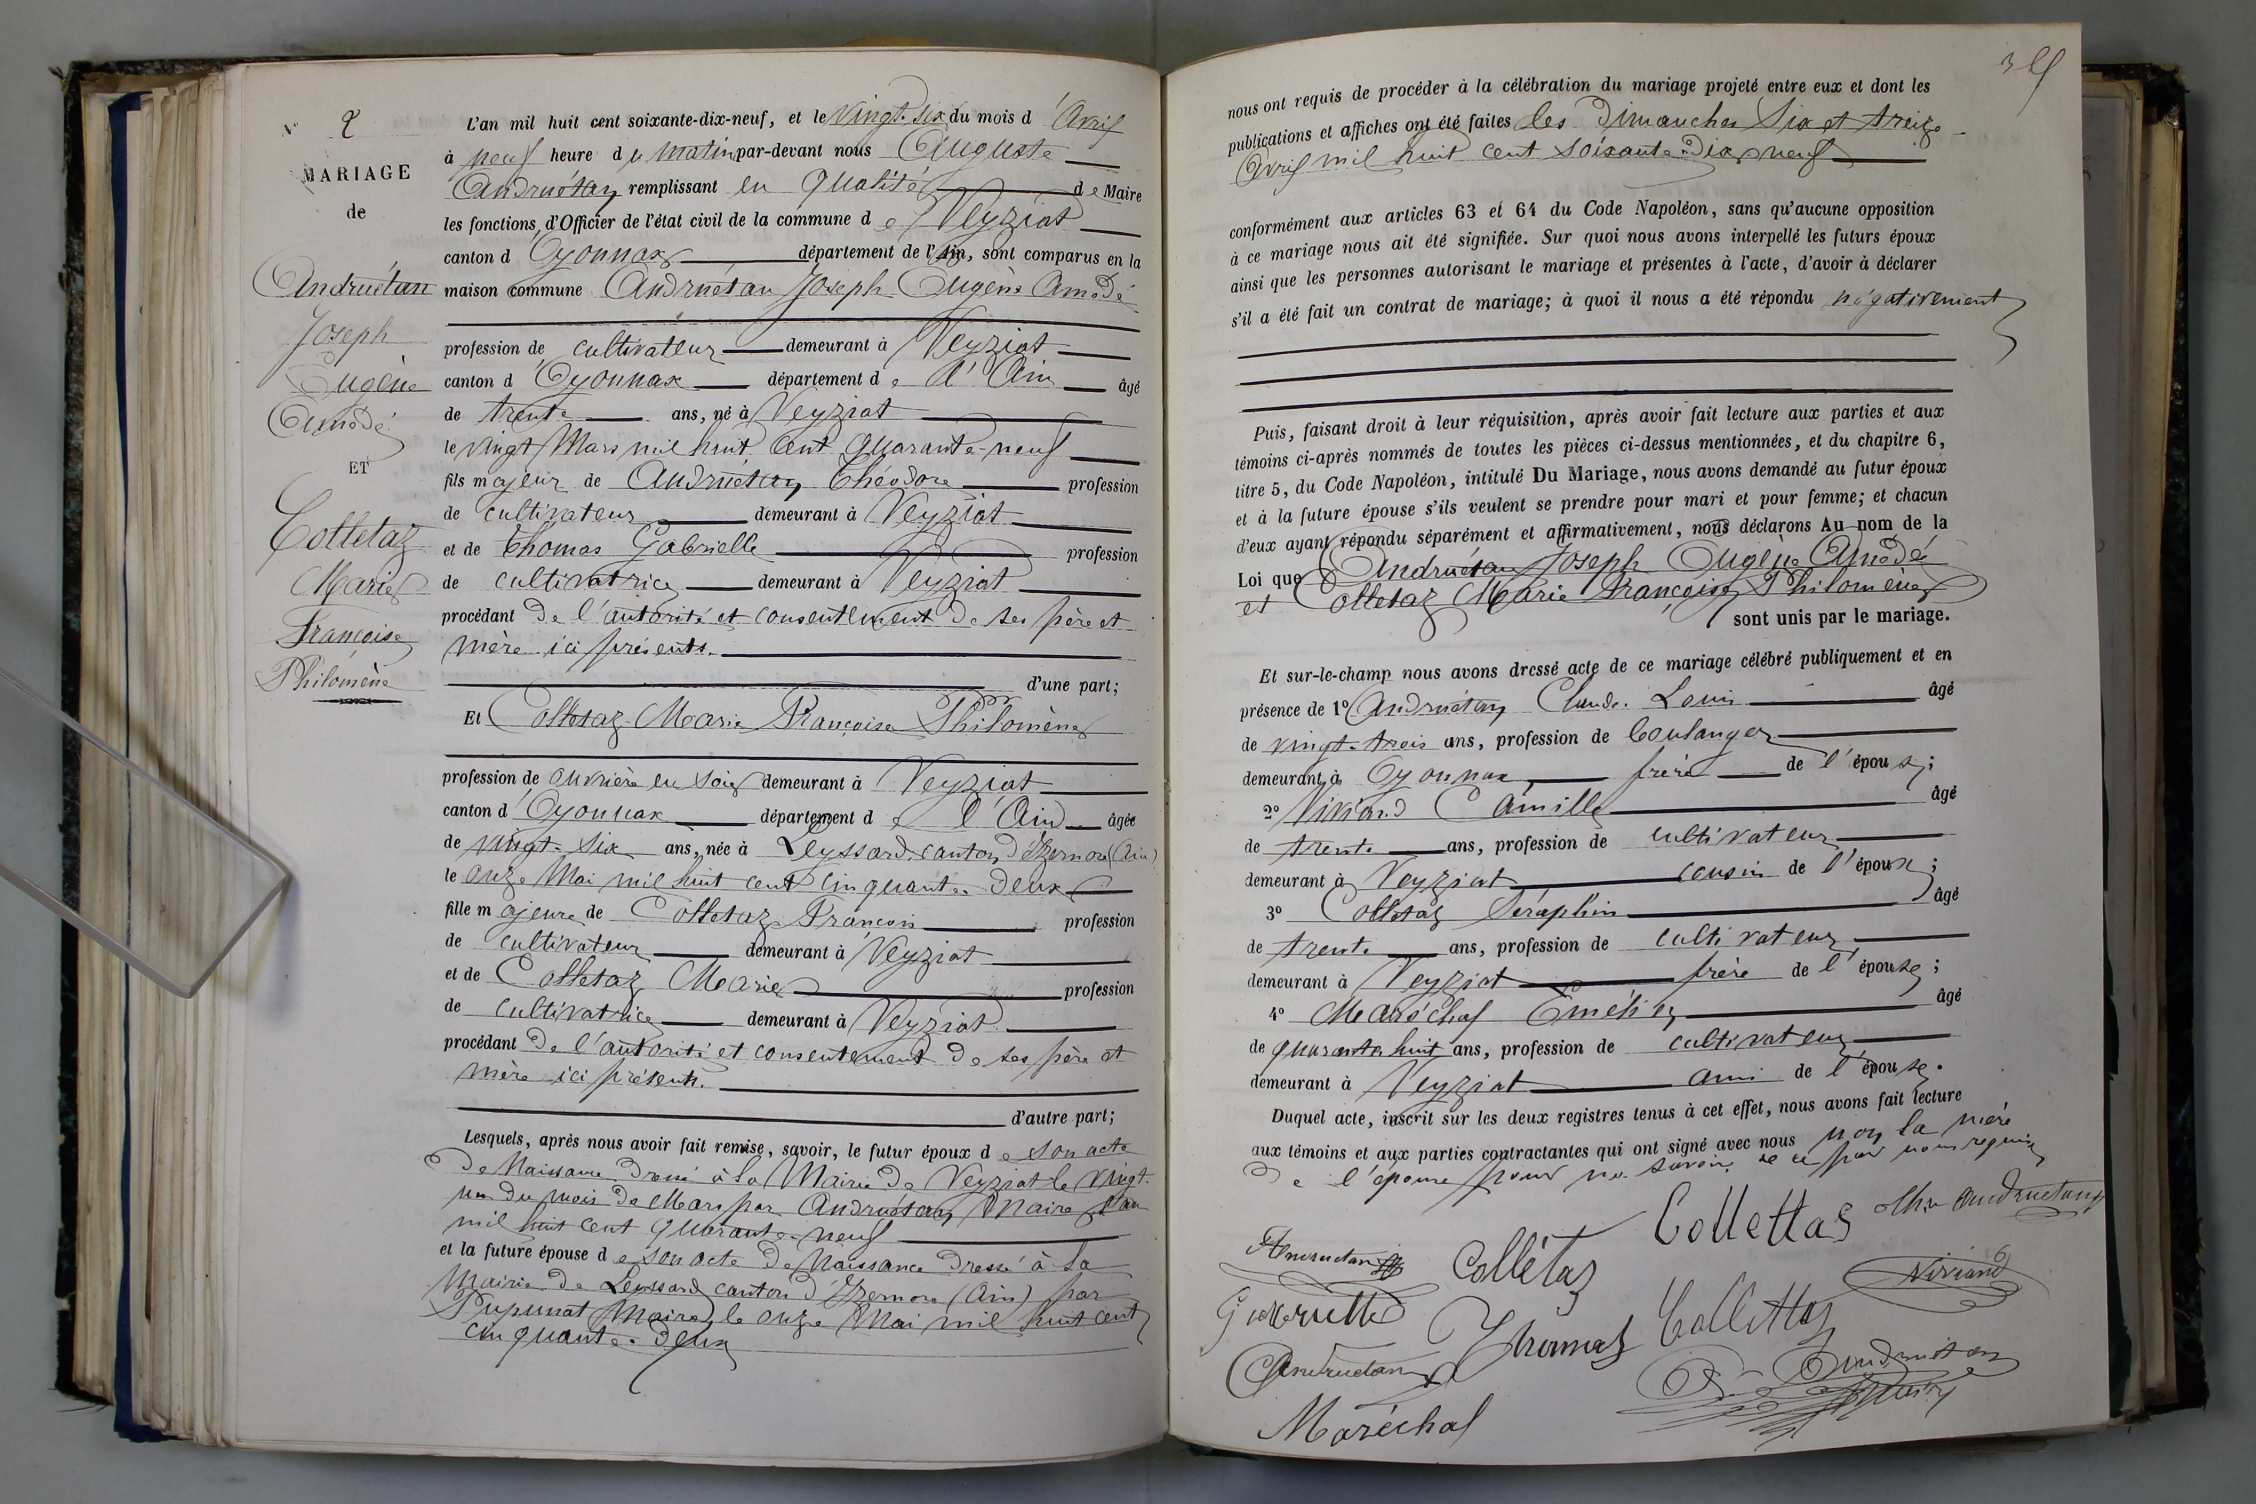 N° 2
MARIAGE
de
Andruétan
Joseph
Eugène
Amédé
ET
Colletaz
Marie
Françoise
Philomène
L'an mil huit cent soixante-dix-neuf, et le vingt-six du mois d'Avril
à neuf heure du matin par-devant nous Auguste
Andruétan remplissant en qualité de Maire
les fonctions d'Officier de l'état civil de la commune de Veyziat
canton d'Oyonnax département de l'Ain, sont comparus en la
maison commune Andruétan Joseph Eugène Amédé
profession de cultivateur demeurant à Veyziat
canton d'Oyonnax département de l'Ain âgé
de trente ans, né à Veyziat
le vingt Mars mil huit cent quarante-neuf
fils majeur de Andruétan Théodore profession
de cultivateur demeurant à Veyziat
et de Thomas Gabrielle profession
de cultivatrice demeurant à Veyziat
procédant de l'autorité et consentement de ses père et
mère ici présents.
d'une part;
Et Colletaz Marie Françoise Philomène
profession de ouvrière en soie demeurant à Veyziat
canton d'Oyonnax département de l'Ain âgée
de vingt-six ans, née à Leyssard canton d'Izernore (Ain)
le onze Mai mil huit cent cinquante-deux
fille majeure de Colletaz François profession
de cultivateur demeurant à Veyziat
et de Colletaz Marie profession
de cultivatrice demeurant à Veyziat
procédant de l'autorité et consentement de ses père et
mère ici présents.
d'autre part;
Lesquels, après nous avoir fait remise, savoir, le futur époux de son acte
de Naissance dressé à la Mairie de Veyziat le vingt-
un du mois de Mars par Andruétan Maire l'an
mil huit cent quarante-neuf
et la future épouse de son acte de Naissance dressé à la
Mairie de Leyssard canton d'Izernore (Ain) par
Pupunat Maire le onze Mai mil huit cent
cinquante-deux
nous ont requis de procéder à la célébration du mariage projeté entre eux et dont les
publications et affiches ont été faites les Dimanches Six et treize
Avril mil huit cent soixante-dix-neuf
conformément aux articles 63 et 64 du Code Napoléon, sans qu'aucune opposition
à ce mariage nous ait été signifiée. Sur quoi nous avons interpellé les futurs époux
ainsi que les personnes autorisant le mariage et présentes à l'acte, d'avoir à déclarer
s'il a été fait un contrat de mariage; à quoi il nous a été répondu négativement
Puis, faisant droit à leur réquisition, après avoir fait lecture aux parties et aux
témoins ci-après nommés de toutes les pièces ci-dessus mentionnées, et du chapitre 6,
titre 5, du Code Napoléon, intitulé Du Mariage, nous avons demandé au futur époux
et à la future épouse s'ils veulent se prendre pour mari et pour femme; et chacun
d'eux ayant répondu séparément et affirmativement, nous déclarons Au nom de la
Loi que Andruétan Joseph Eugène Amédé
et Colletaz Marie Françoise Philomène
sont unis par le mariage.
Et sur-le-champ nous avons dressé acte de ce mariage célébré publiquement et en
présence de 1° Andruétan Claude Louis âgé
de vingt-trois ans, profession de boulanger
demeurant à Oyonnax frère de l'époux;
2° Viviand Camille âgé
de trente ans, profession de cultivateur
demeurant à Veyziat cousin de l'époux;
3° Colletaz Séraphin âgé
de trente ans, profession de cultivateur
demeurant à Veyziat frère de l'épouse;
4° Maréchal Emélien âgé
de quarante huit ans, profession de cultivateur
demeurant à Veyziat ami de l'épouse.
Duquel acte, inscrit sur les deux registres tenus à cet effet, nous avons fait lecture
aux témoins et aux parties contractantes qui ont signé avec nous non la mère
de l'épouse pour ne savoir de ce par nous requis
Collettas
Andruetan
Andruetan
Collétaz
Viviand
Gabrielle
Thomas
Collettaz
Andruetan
Andruétan
Maréchal